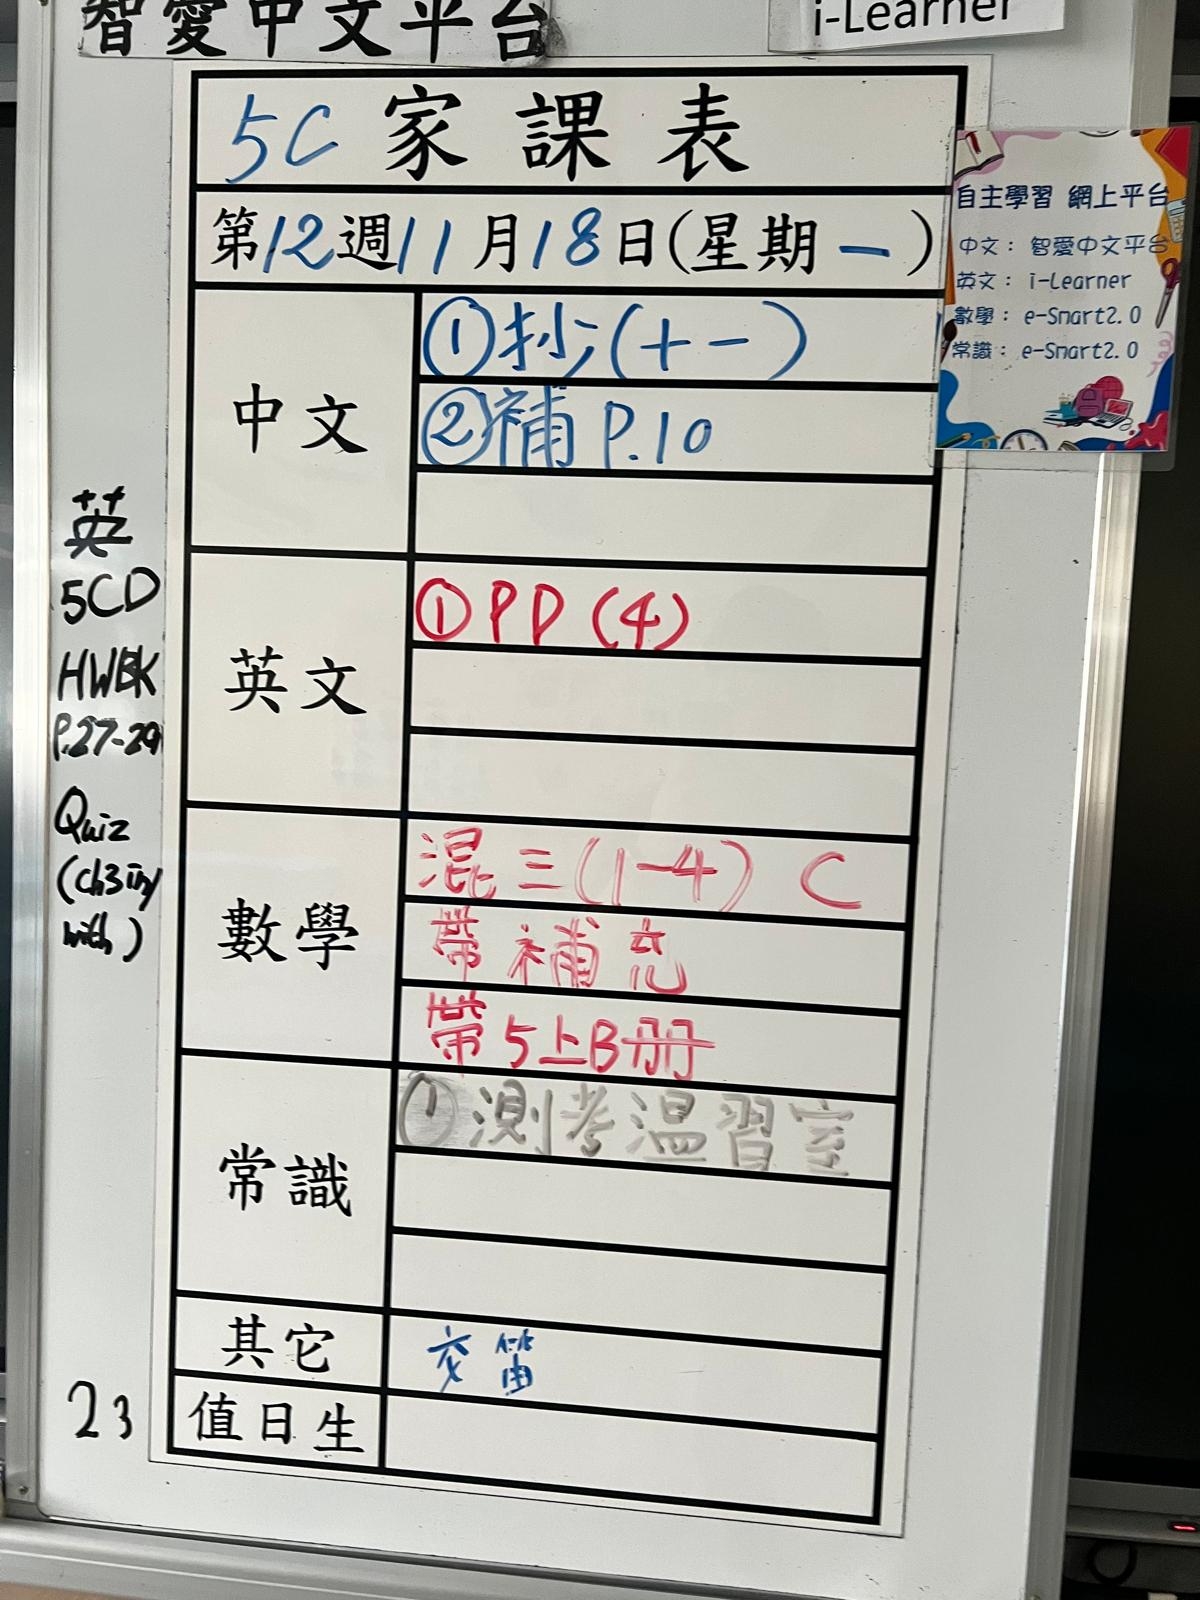 智愛中文平台
i-Learner
5C 家課表
第12週11月18日(星期一)
自主學習 網上平台
中文： 智愛中文平台
英文： i-Learner
數學： e-Smart2.0
常識： e-Smart2.0
中文
①抄(十一)
②補 P.10
英文
①PD (4)
數學
混三(1-4) C
帶補充
帶5上B冊
常識
①測考溫習室
其它
交笛
值日生
英
5CD
HWBK
P.27-29
Quiz
(ch3
with)
23